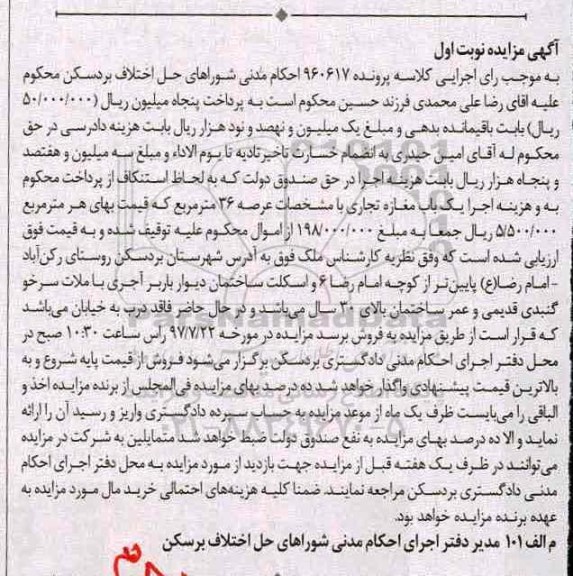 آگهی مزایده نوبت اول
به موجب رای اجرایی کلاسه پرونده ۹۶۰۶۱۷ احکام مدنی شوراهای حل اختلاف بردسکن محکوم
علیه اقای رضا علی محمدی فرزند حسین محکوم است به پرداخت پنجاه میلیون ریال (۵۰/۰۰۰/۰۰۰
ریال) بابت باقیمانده بدهی و مبلغ یک میلیون و نهصد و نود هزار ریال بابت هزینه دادرسی در حق
محکوم له آقای امین حیدری به انضمام خسارت تاخیر تادیه تا یوم الاداء و مبلغ سه میلیون و هفتصد
و پنجاه هزار ریال بابت هزینه اجرا در حق صندوق دولت که به لحاظ استنکاف از پرداخت محکوم
به و هزینه اجرا یک باب مغازه تجاری با مشخصات عرصه ۳۶ مترمربع که قیمت بهای هر مترمربع
۵/۵۰۰/۰۰۰ ریال جمعا به مبلغ ۱۹۸/۰۰۰/۰۰۰ از اموال محکوم علیه توقیف شده و به قیمت فوق
ارزیابی شده است که وفق نظریه کارشناس ملک فوق به آدرس شهرستان بردسکن روستای رکن‌آباد
- امام رضا(ع) پایین‌تر از کوچه امام رضا ۶ و اسکلت ساختمان دیوار باربر آجری با ملات سرخو
گنبدی قدیمی و عمر ساختمان بالای ۳۰ سال می‌باشد و در حال حاضر فاقد درب به خیابان می‌باشد
که قرار است از طریق مزایده به فروش برسد مزایده در مورخه ۹۷/۷/۲۲ راس ساعت ۱۰:۳۰ صبح در
محل دفتر اجرای احکام مدنی دادگستری بردسکن برگزار می‌شود فروش از قیمت پایه شروع و به
بالاترین قیمت پیشنهادی واگذار خواهد شد ده درصد بهای مزایده فی‌المجلس از برنده مزایده اخذ و
الباقی را می‌بایست ظرف یک ماه از موعد مزایده به حساب سپرده دادگستری واریز و رسید آن را ارائه
نماید و الا ده درصد بهای مزایده به نفع صندوق دولت ضبط خواهد شد متمایلین به شرکت در مزایده
می‌توانند در ظرف یک هفته قبل از مزایده جهت بازدید از مورد مزایده به محل دفتر اجرای احکام
مدنی دادگستری بردسکن مراجعه نمایند. ضمنا کلیه هزینه‌های احتمالی خرید مال مورد مزایده به
عهده برنده مزایده خواهد بود.
م الف ۱۰۱ مدیر دفتر اجرای احکام مدنی شوراهای حل اختلاف برسکن
ParsNamadData
۰۲۱-۸۸۳۴۹۶۷۰-۵